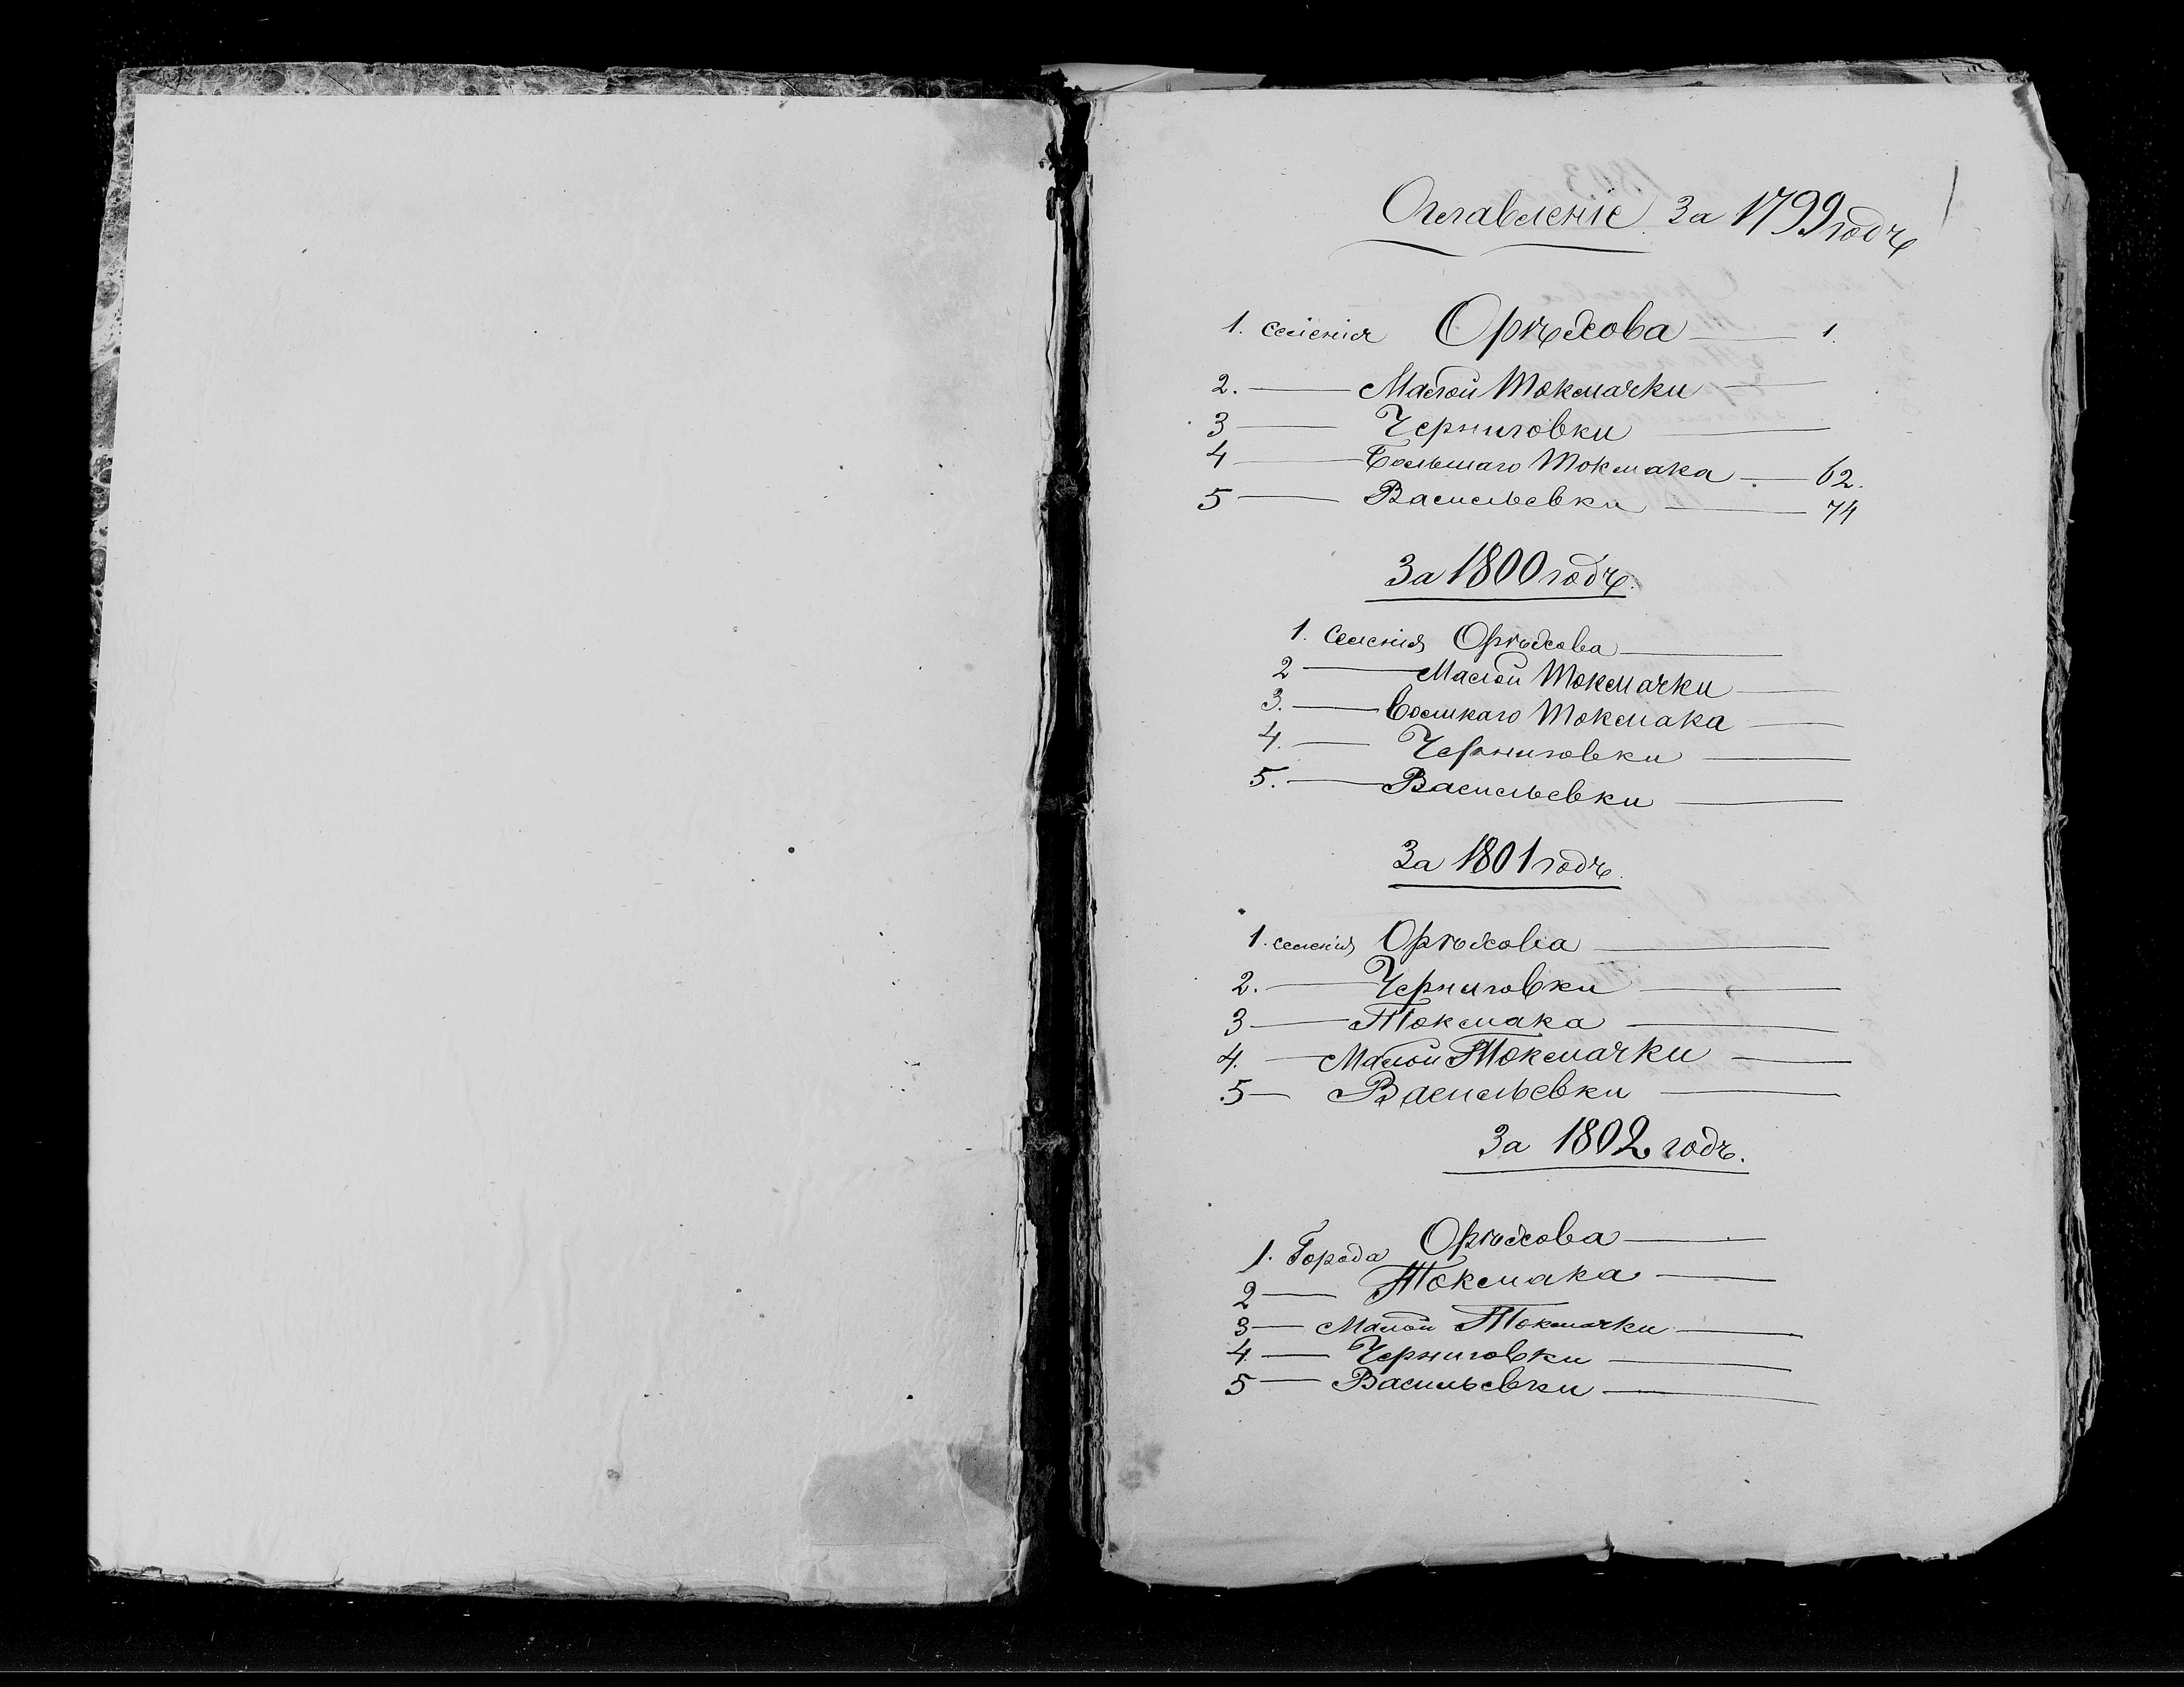 Оглавленіе за 1799 годъ
1. селенія Орѣхова — 1.
2. — Малой Токмачки —
3 — Черниговки —
4 — Большаго Токмака — 62.
5 — Васильевки — 74
За 1800 годъ.
1. Селенія Орѣхова —
2 — Малой Токмачки —
3. — Токмака —
4. — Черниговки —
5. — Васильевки —
За 1801 годъ.
1. селенія Орѣхова —
2. — Черниговки —
3 — Токмака —
4. — Малой Токмачки —
5 — Васильевки —
За 1802 годъ.
1. Города Орѣхова —
2 — Токмака —
3 — Малой Токмачки —
4. — Черниговки —
5 — Васильевки —